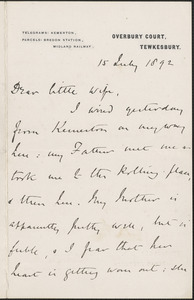 TELEGRAMS: KEMERTON,
PARCELS: BREDON STATION,
MIDLAND RAILWAY.
OVERBURY COURT,
TEWKESBURY.
15 July 1892
Dear little Wife,
I wired yesterday
from Kemerton on my way
here: my Father met me &
took me to the Rolling
& then here. My Mother is
apparently pretty well, but is
feeble, & I fear that her
heart is getting worn out: she